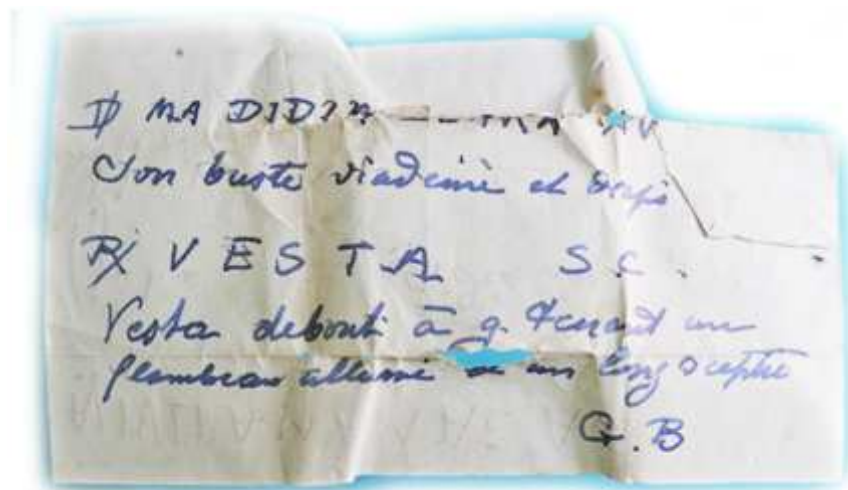 D/ MA DIDIA
Son buste diadémé et drapé
R/ V E S T A S C.
Vesta debout à g. tenant un
flambeau allumé et un long sceptre
G.B